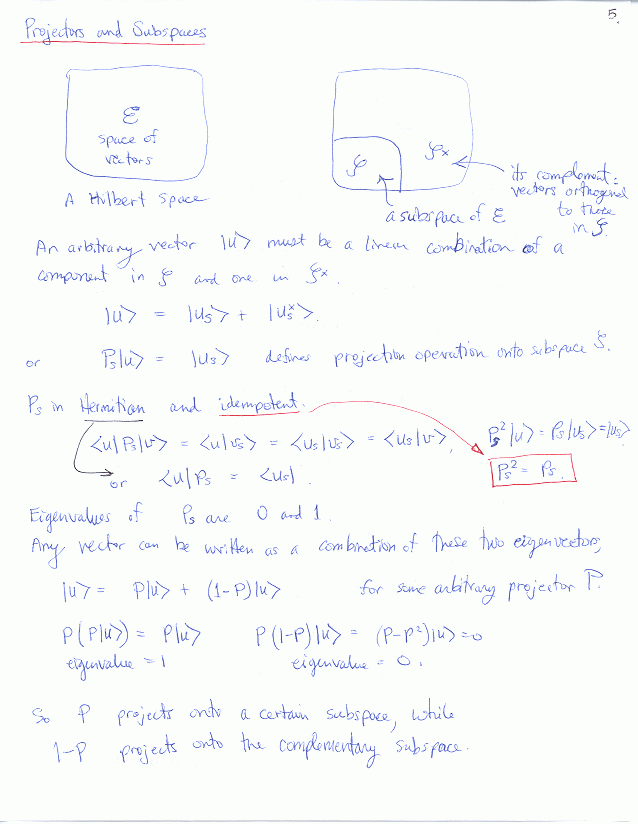 5.
Projectors and Subspaces
ℰ
space of
vectors
𝒮
𝒮ˣ
its complement:
vectors orthogonal
to those
in 𝒮.
A Hilbert Space
a subspace of ℰ
An arbitrary vector |u> must be a linear combination of a
component in 𝒮 and one in 𝒮ˣ.
|u> = |u_s> + |u_s^x>.
or P_s|u> = |u_s> defines projection operation onto subspace 𝒮.
P_s in Hermitian and idempotent.
<u|P_s|v> = <u|v_s> = <u_s|v_s> = <u_s|v>, P_s²|u> = P_s|u_s> = |u_s>
or <u|P_s = <u_s|. P_s² = P_s.
Eigenvalues of P_s are 0 and 1.
Any vector can be written as a combination of these two eigenvectors,
|u> = P|u> + (1-P)|u> for some arbitrary projector P.
P(P|u>) = P|u> P(1-P)|u> = (P-P²)|u> = 0
eigenvalue = 1 eigenvalue = 0.
So P projects onto a certain subspace, while
1-P projects onto the complementary subspace.